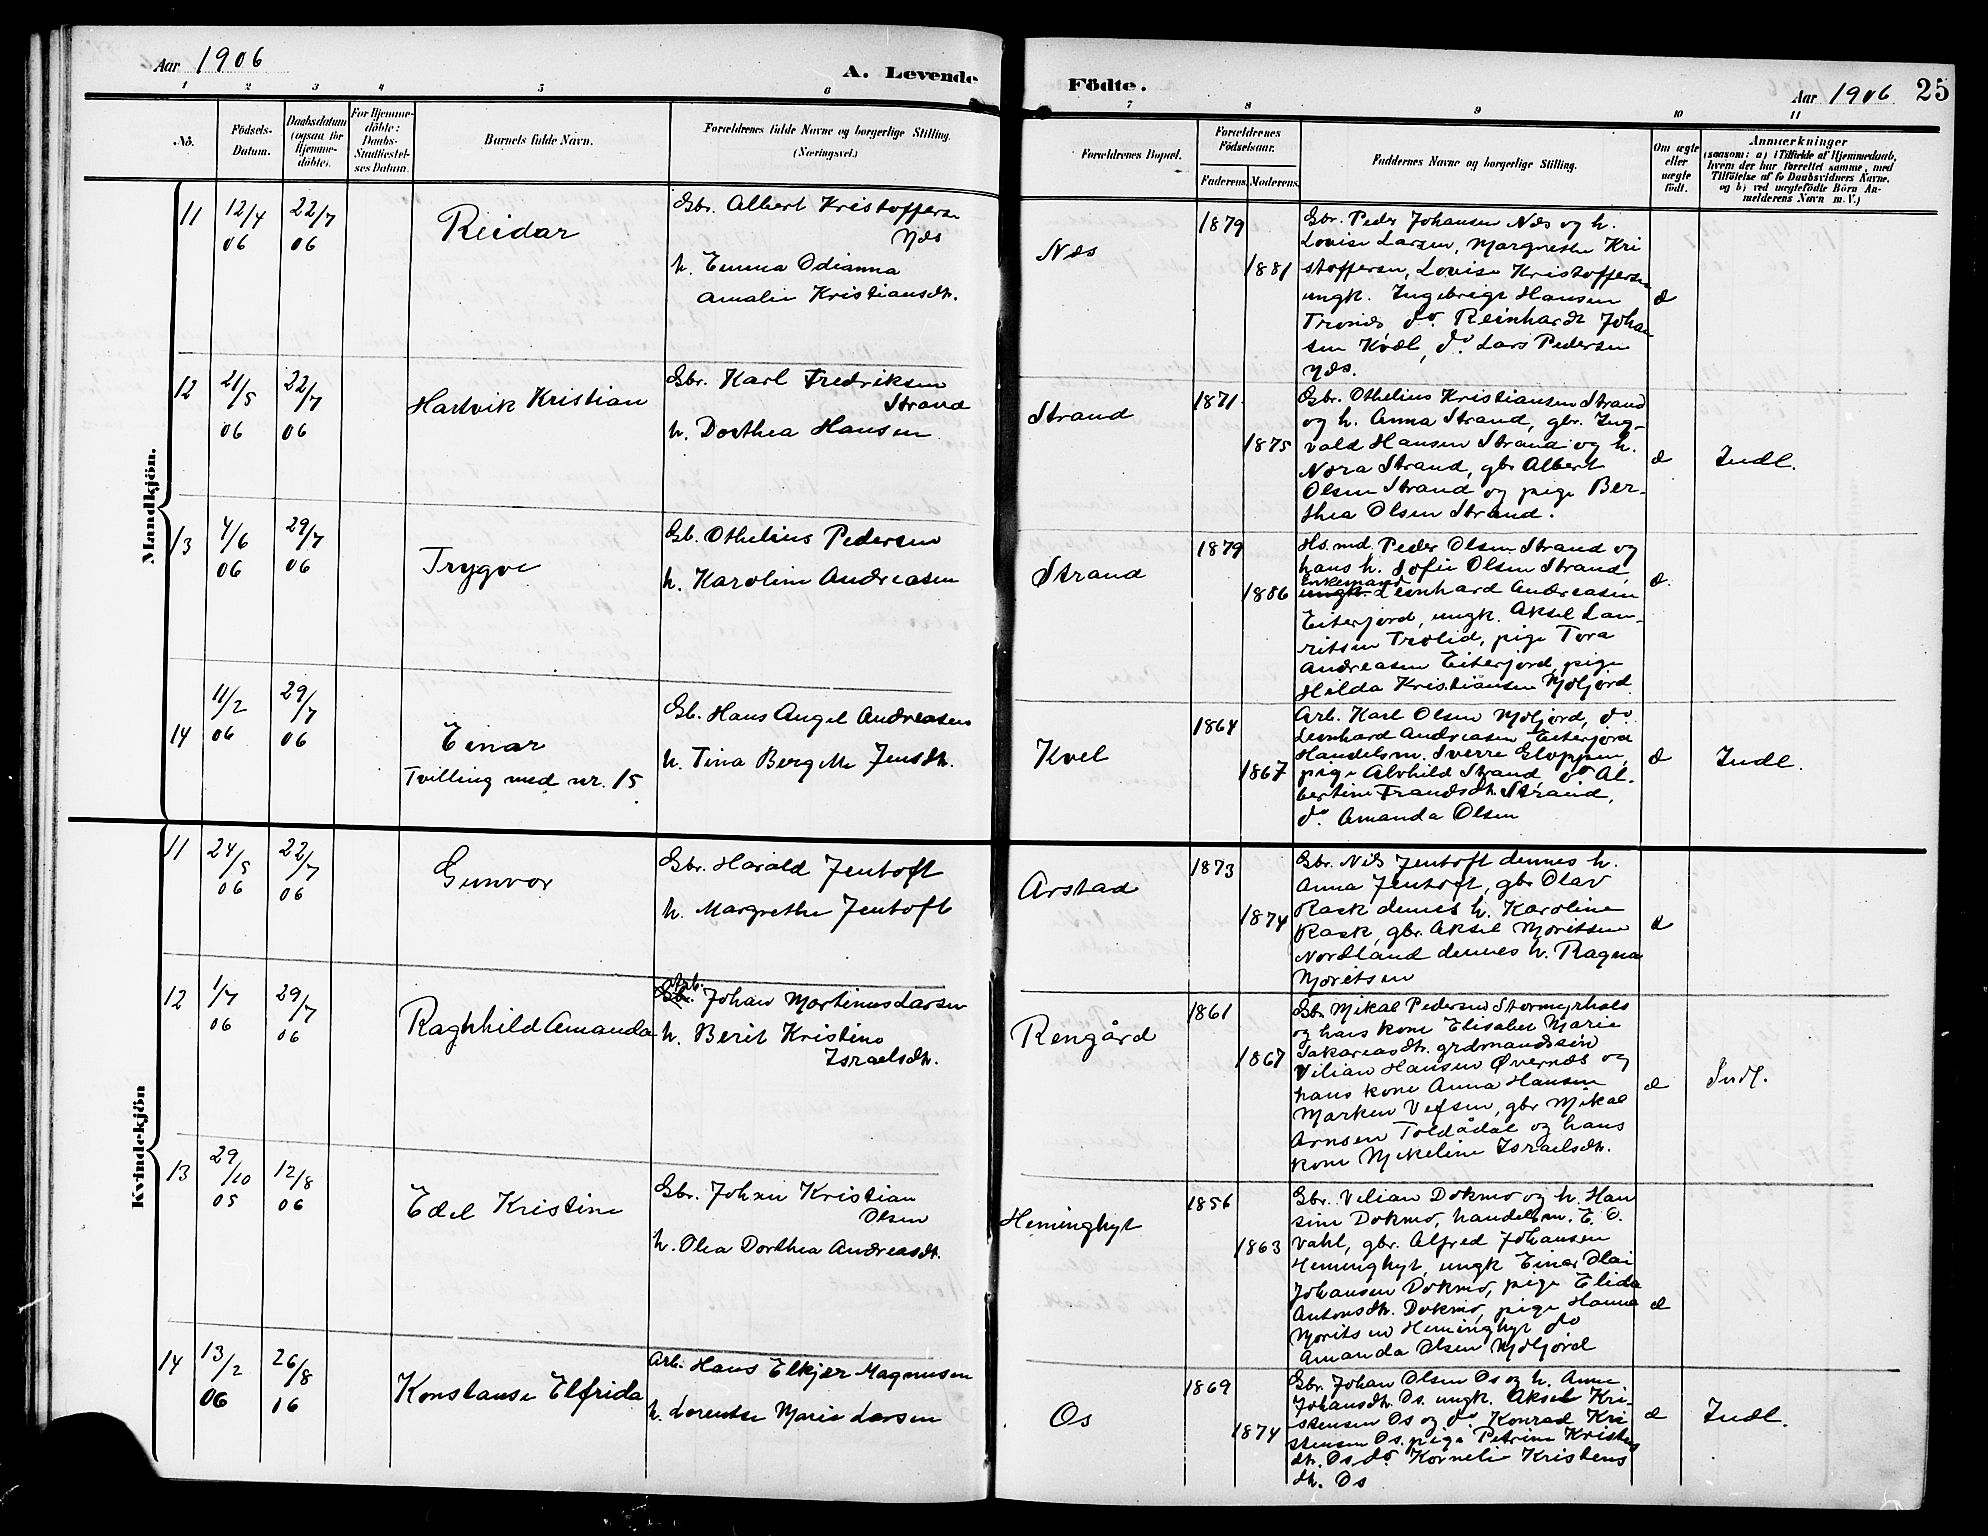 Aar 1906
A. Levende Födte.
Aar 1906 25
1 2 3 4 5 6 7 8 9 10 11
No.
Födsels-
Datum.
Daabsdatum
(ogsaa for
Hjemme-
döbte).
For Hjemme-
döbte:
Daabs-
Stadfæstel-
ses Datum.
Barnets fulde Navn.
Forældrenes fulde Navne og borgerlige Stilling.
(Næringsvei.)
Forældrenes Bopæl.
Forældrenes
Födselsaar.
Faderens. Moderens.
Faddernes Navne og borgerlige Stilling.
Om ægte
eller
uægte
födt.
Anmærkninger
(saasom: a) i Tilfælde af Hjemmedaab,
hvem der har forrettet samme, med
Tilföielse af to Daabsvidners Navne,
og b) ved uægtefödte Börn An-
melderens Navn m. V.)
Mandkjön.
11
12/4
06
22/7
06
Reidar
Gbr. Albert Kristoffersen
Næs
h. Emma Odianna
Amalie Kristiansdtr.
Næs
1879
1881
Gbr. Peder Johansen Næs og h.
Lovise Larsen, Margrethe Kri
stoffersen, Lovise Kristoffersen
ungk. Ingebrigt Hansen
Tronæs, do. Reinhardt Johan
sen Kvæl, do. Lars Pedersen
Næs.
æ
12
21/5
06
22/7
06
Hartvik Kristian
Gbr. Karl Fredriksen
Strand
h. Dorthea Hansen
Strand
1871
1875
Gbr. Othelius Kristiansen Strand
og h. Anna Strand, gbr. Ing-
vald Hansen Strand og h.
Nora Strand, gbr Albert
Olsen Strand og pige Ber-
thea Olsen Strand.
æ
Indl.
13
4/6
06
29/7
06
Trygve
Gb. Othelius Pedersen
h. Karoline Andreasen
Strand
1879
1886
Hs.md. Peder Olsen Strand og
hans h. Sofie Olsen Strand
Enkemand
ungk. Leonhard Andreasen
Eiterjord, ungk. Aksel Lau-
ritsen Trolid, pige Tora
Andreasen Eiterjord, pige
Hilda Kristiansen Moljord
æ.
14
11/2
06
29/7
06
Einar
Tvilling med nr. 15
Gb. Hans Angel Andreasen
h. Tina Bergitte Jensdtr.
Kvel
1864
1867
Arb. Karl Olsen Moljord, do.
Leonhard Andreasen Eiterjord
Handelsm. Sverre Gloppen,
pige Alvhild Strand do Al-
bertine Frandsdtr. Strand,
do. Amanda Olsen
æ
Indl.
Kvindekjön
11
24/5
06
22/7
06
Gunvor
Gbr. Harald Jentoft
h. Margrethe Jentoft
Arstad
1873
1874
Gbr. Nils Jentoft dennes h.
Anna Jentoft, gbr Olav
Rask dennes h. Karoline
Rask, gbr. Aksel Moritsen
Nordland dennes h. Ragna
Moritsen
æ
12
1/7
06
29/7
06
Raghhild Amanda
Arb.
Gbr. Johan Martinus Larsen
h. Berit Kristine
Israelsdtr.
Rengård
1861
1867
Gbr Mikal Pedersen Stormyrhals
og hans kone Elisabet Marie
Sakariasdtr. grdmandssön
Vilian Hansen Øvernæs og
hans kone Anna Hansen
Marken Vefsen, gbr Mikal
Arnsen Toldådal og hans
kone Mikeline Israelsdtr.
æ
Indl.
13
29/10
05
12/8
06
Edel Kristine
Gbr. Johan Kristian
Olsen
h. Olea Dorthea Andreasdtr.
Heminghyt
1856
1863
Gbr. Vilian Dokmo og h. Han
sine Dokmo, handelsm. E. O.
Vahl, gbr. Alfred Johansen
Heminghyt, ungk Einar Olai
Johansen Dokmo, pige Elida
Antonsdtr. Dokmo, pige Hanna
Moritsen Heminghyt do
Amanda Olsen Moljord
æ
14
13/2
06
26/8
06
Konstanse Elfrida
Arb. Hans Elkjær Magnusen
h. Lorentse Marie Larsen
Os
1869
1874
Gbr. Johan Olsen Os og h. Anne
Johansdtr. Os. ungk. Aksel Kri-
stensen Os og do. Konrad Kri
stensen Os. pige Petrine Kristens
dtr. Os, do Kornelie Kristens
dtr. Os
æ
Indl.